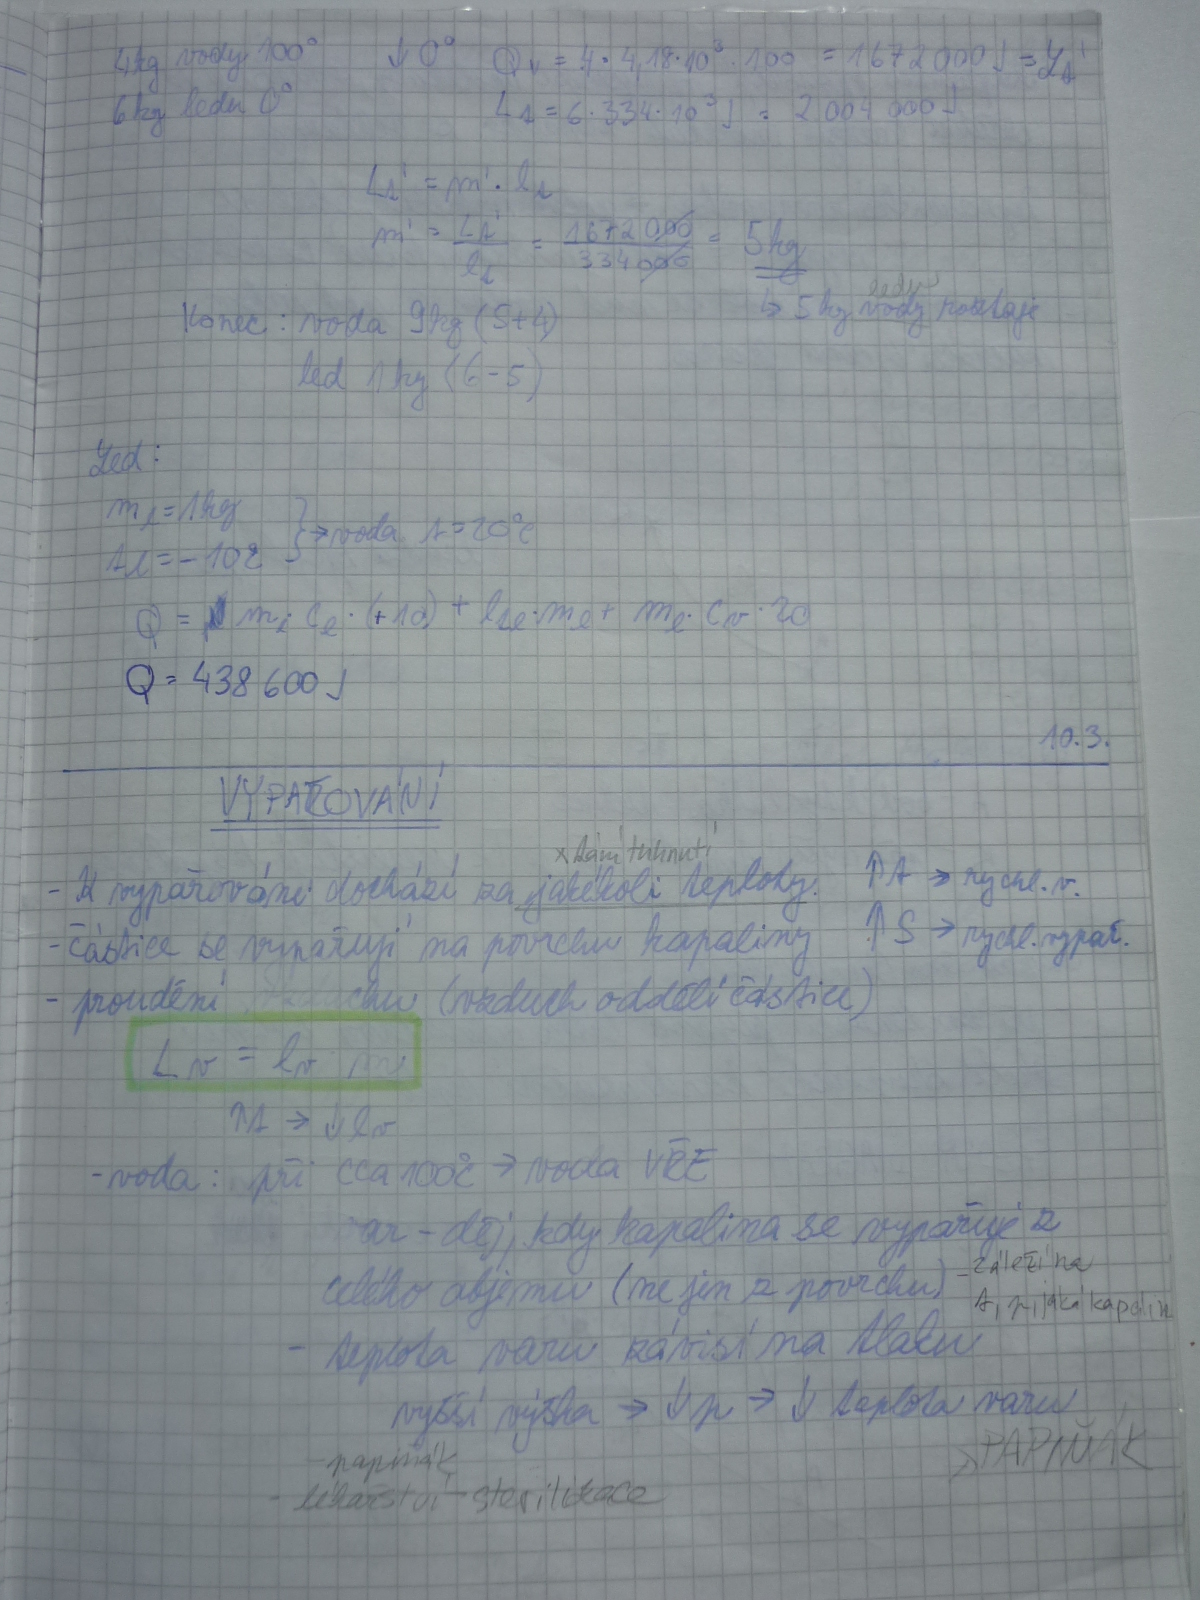 4kg vody 100° ↓0° Qv = 4·4,18·10³·100 = 1672000J = Lt'
6kg ledu 0° Lt = 6·334·10³J = 2004000J
Lt' = m'·lt
m' = Lt'/lt = 1672000/334000 = 5kg
ledu
↳ 5kg vody roztaje
Konec: voda 9kg (5+4)
led 1kg (6-5)
Led:
ml = 1kg
tl = -10°C } → voda t = 20°C
Q = ml·cl·(+10) + ltl·ml + ml·cv·20
Q = 438600J
10.3.
VYPAŘOVÁNÍ
x tání tuhnutí
- K vypařování dochází za jakékoli teploty. ↑t → rychl. v.
- částice se vypařují na povrchu kapaliny ↑S → rychl. vypař.
- proudění vzduchu (vzduch oddělí částice)
Lv = lv m
↑t → ↓lv
- voda: při cca 100°C → voda VŘE
var - děj, kdy kapalina se vypařuje z
celého objemu (ne jen z povrchu) - záleží na
t, p, jaká kapalin
- teplota varu závisí na tlaku
vyšší výška → ↓p → ↓ teplota varu
> PAPIŇÁK
- papiňák
- lékařství - sterilizace